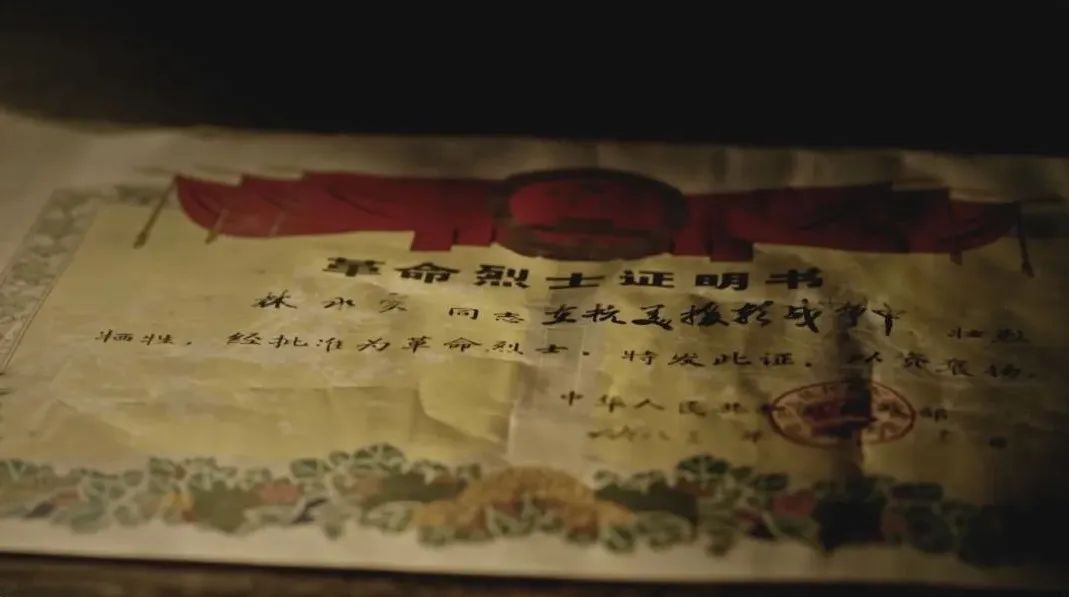 革命烈士证明书
林水实 同志在抗美援朝战争中 壮烈
牺牲，经批准为革命烈士。特发此证，以资褒扬。
中华人民共 部